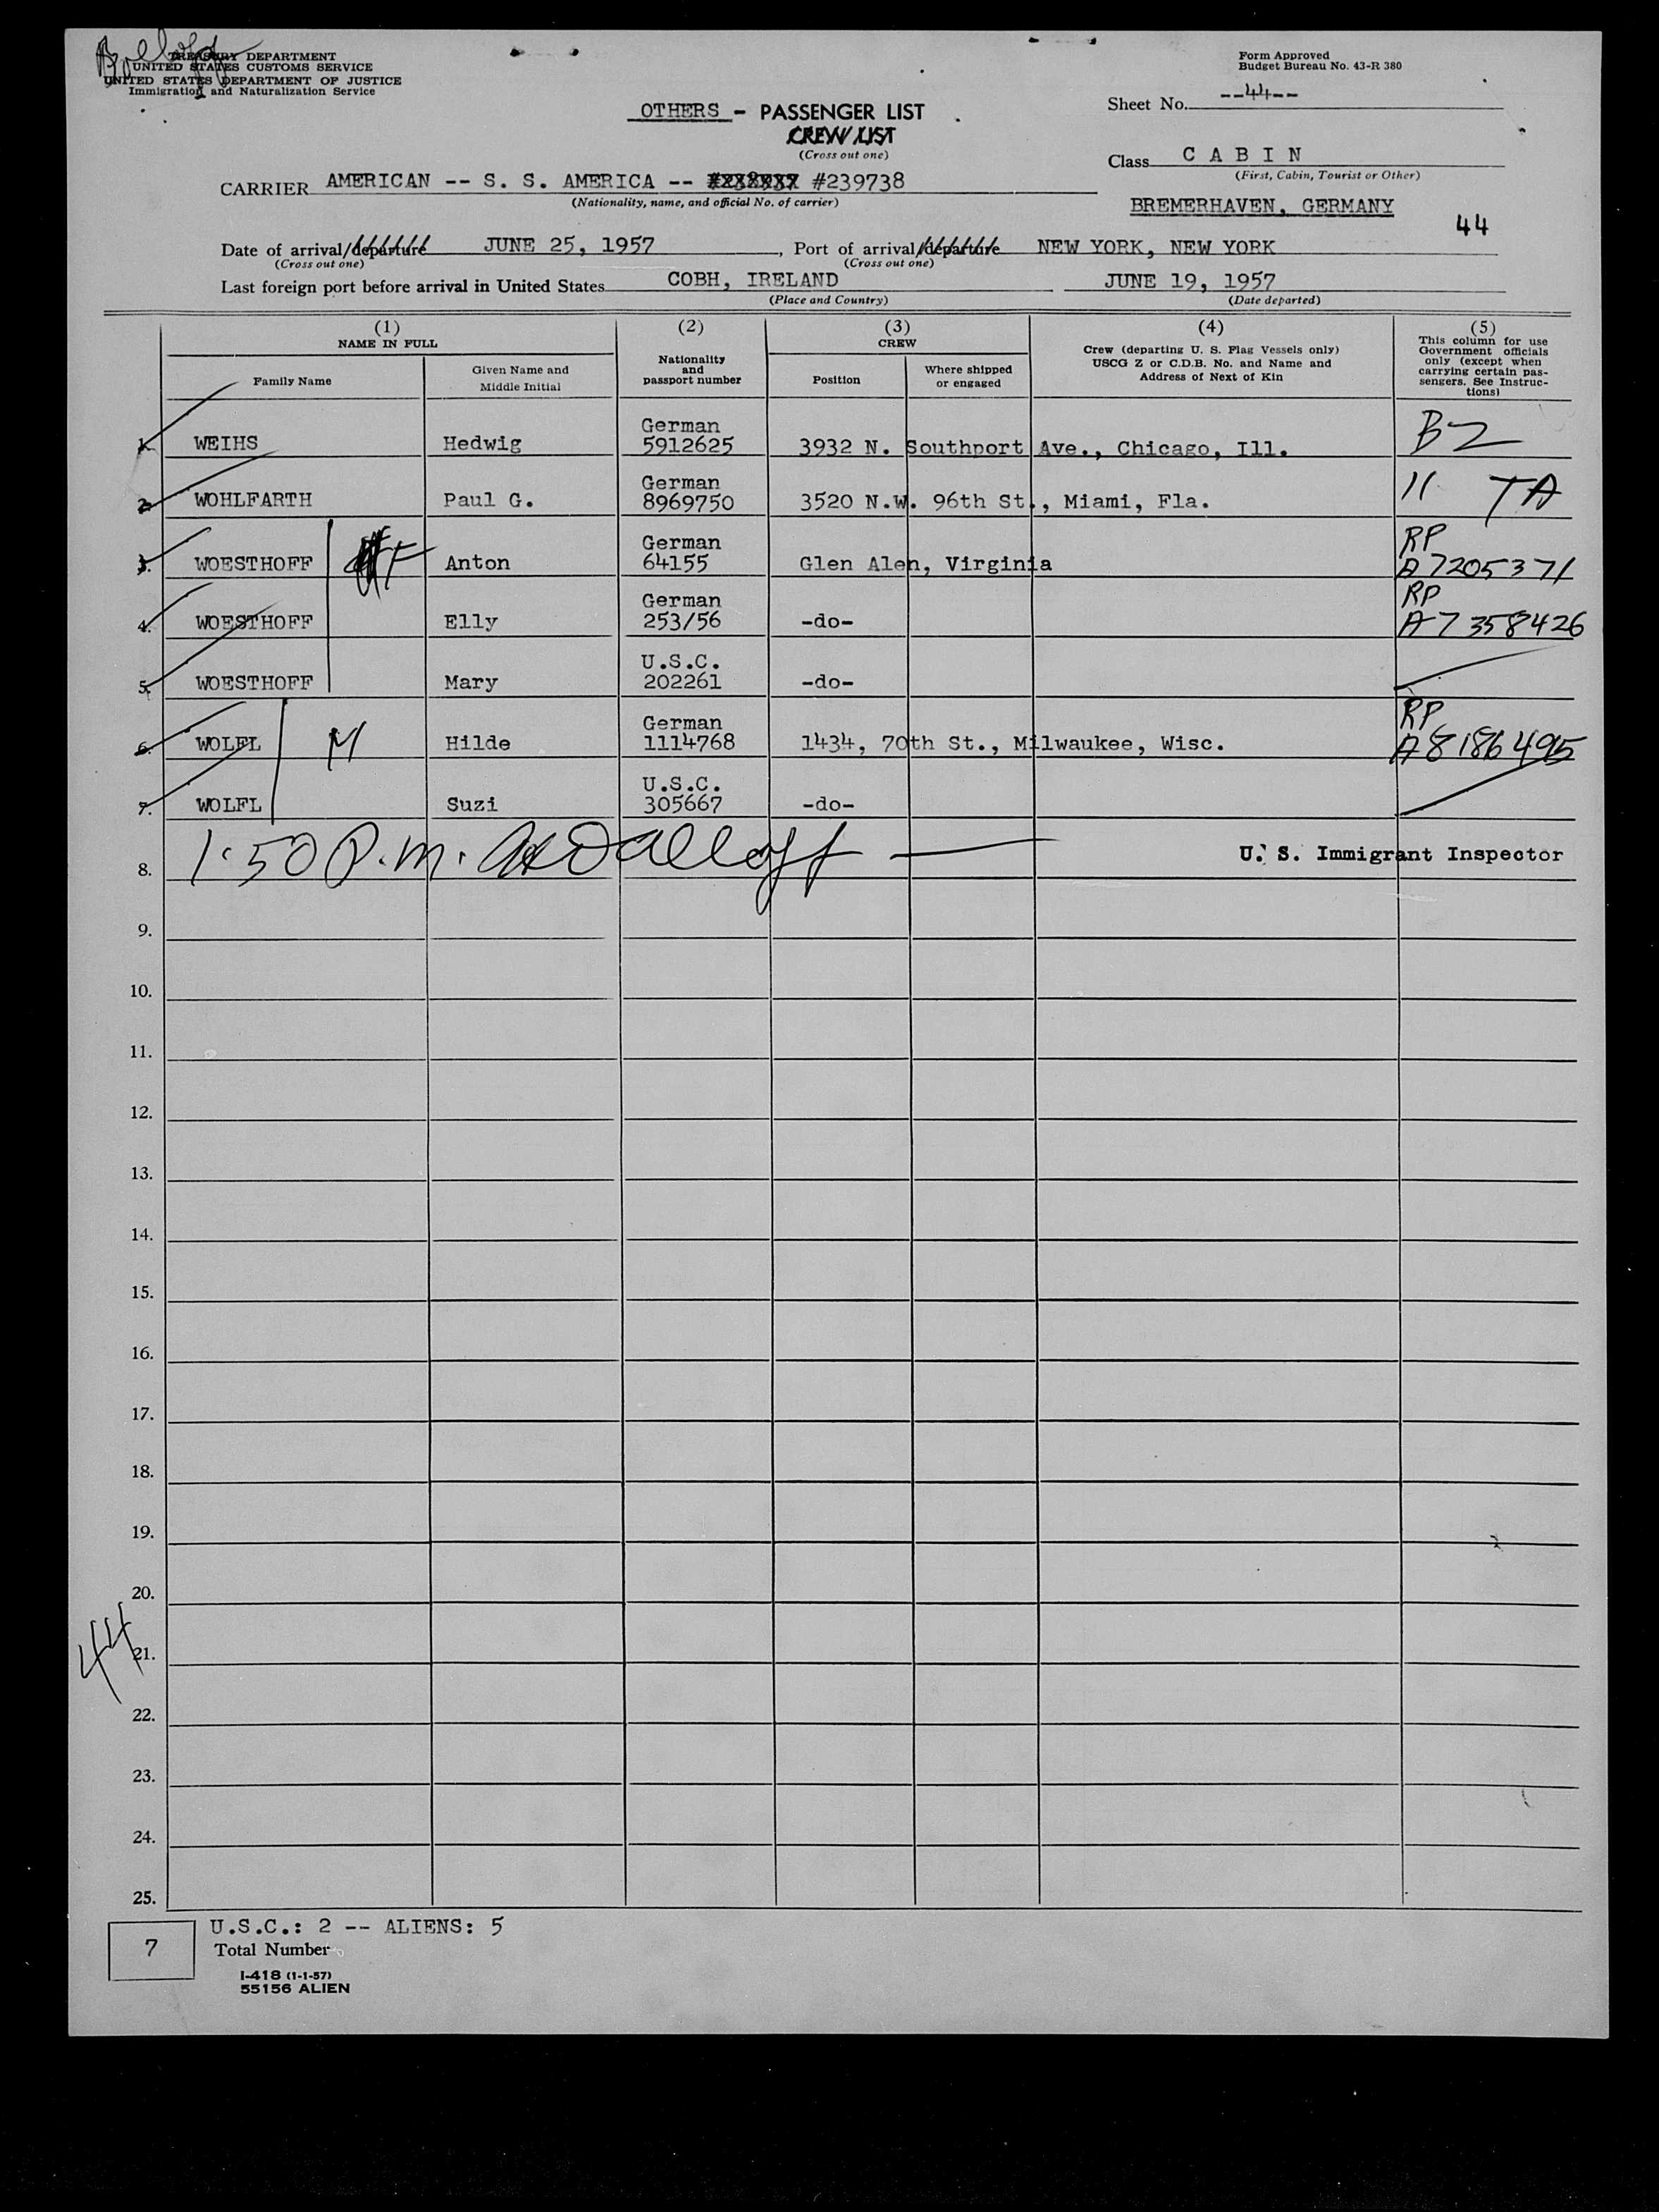 TREASURY DEPARTMENT
UNITED STATES CUSTOMS SERVICE
UNITED STATES DEPARTMENT OF JUSTICE
Immigration and Naturalization Service
Form Approved
Budget Bureau No. 43-R 380
Sheet No. --44--
OTHERS - PASSENGER LIST
CREW LIST
(Cross out one)
Class C A B I N
(First, Cabin, Tourist or Other)
CARRIER AMERICAN -- S. S. AMERICA -- #239738
(Nationality, name, and official No. of carrier)
BREMERHAVEN, GERMANY
44
Date of arrival/departure JUNE 25, 1957, Port of arrival/departure NEW YORK, NEW YORK
(Cross out one) (Cross out one)
Last foreign port before arrival in United States COBH, IRELAND JUNE 19, 1957
(Place and Country) (Date departed)
(1) (2) (3) (4) (5)
NAME IN FULL
Family Name
Given Name and
Middle Initial
Nationality
and
passport number
CREW
Position
Where shipped
or engaged
Crew (departing U. S. Flag Vessels only)
USCG Z or C.D.B. No. and Name and
Address of Next of Kin
This column for use
Government officials
only (except when
carrying certain pas-
sengers. See Instruc-
tions)
German
1. WEIHS Hedwig 5912625 3932 N. Southport Ave., Chicago, Ill. B2
German
2. WOHLFARTH Paul G. 8969750 3520 N.W. 96th St., Miami, Fla. 11 TA
German RP
3. WOESTHOFF F Anton 64155 Glen Alen, Virginia A7205371
German RP
4. WOESTHOFF Elly 253/56 -do- A7358426
U.S.C.
5. WOESTHOFF Mary 202261 -do-
German RP
6. WOLFL M Hilde 1114768 1434, 70th St., Milwaukee, Wisc. A8186495
U.S.C.
7. WOLFL Suzi 305667 -do-
8. 1:50 P.M. U. S. Immigrant Inspector
9.
10.
11.
12.
13.
14.
15.
16.
17.
18.
19.
20.
44
21.
22.
23.
24.
25.
7
U.S.C.: 2 -- ALIENS: 5
Total Number
I-418 (1-1-57)
55156 ALIEN